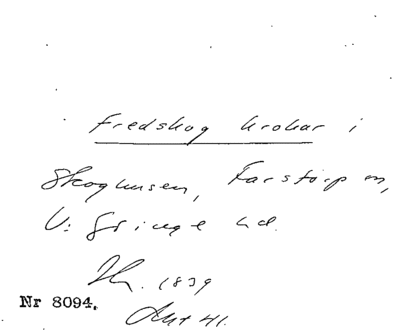 Fredskog krokar i
Skoghusen, Farstorp sn,
V: Göinge hd.
1839
Nr 8094.
Akt 41.